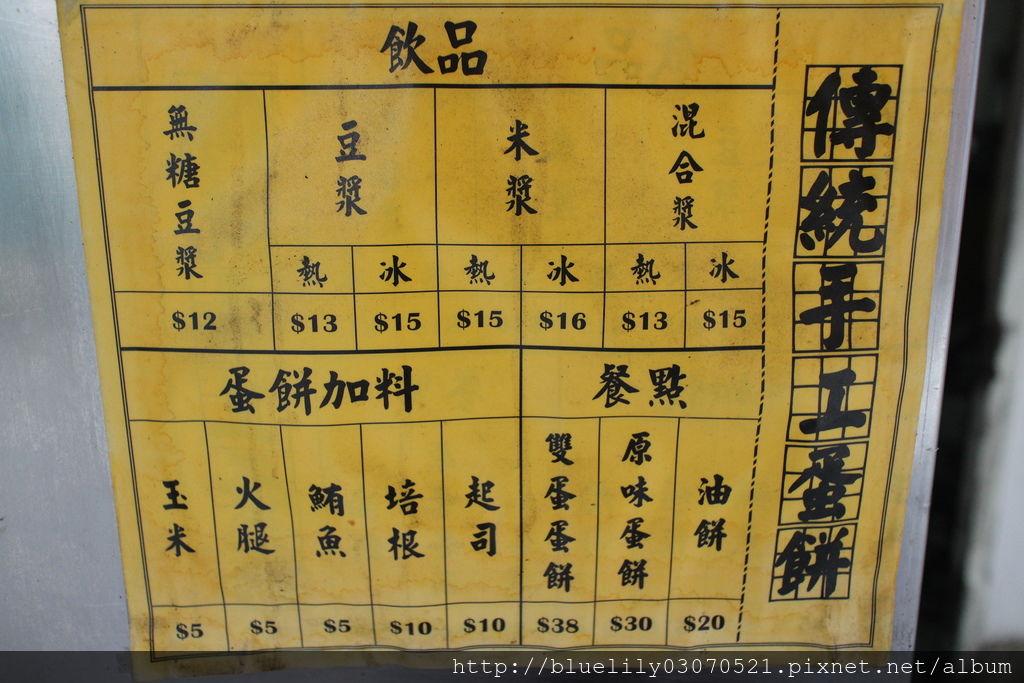 傳統手工蛋餅
飲品
混合漿
米漿
豆漿
無糖豆漿
熱 冰 熱 冰 熱 冰
$12 $13 $15 $15 $16 $13 $15
蛋餅加料 餐點
油餅
原味蛋餅
雙蛋蛋餅
起司
培根
鮪魚
火腿
玉米
$5 $5 $5 $10 $10 $38 $30 $20
http://bluelily03070521.pixnet.net/album